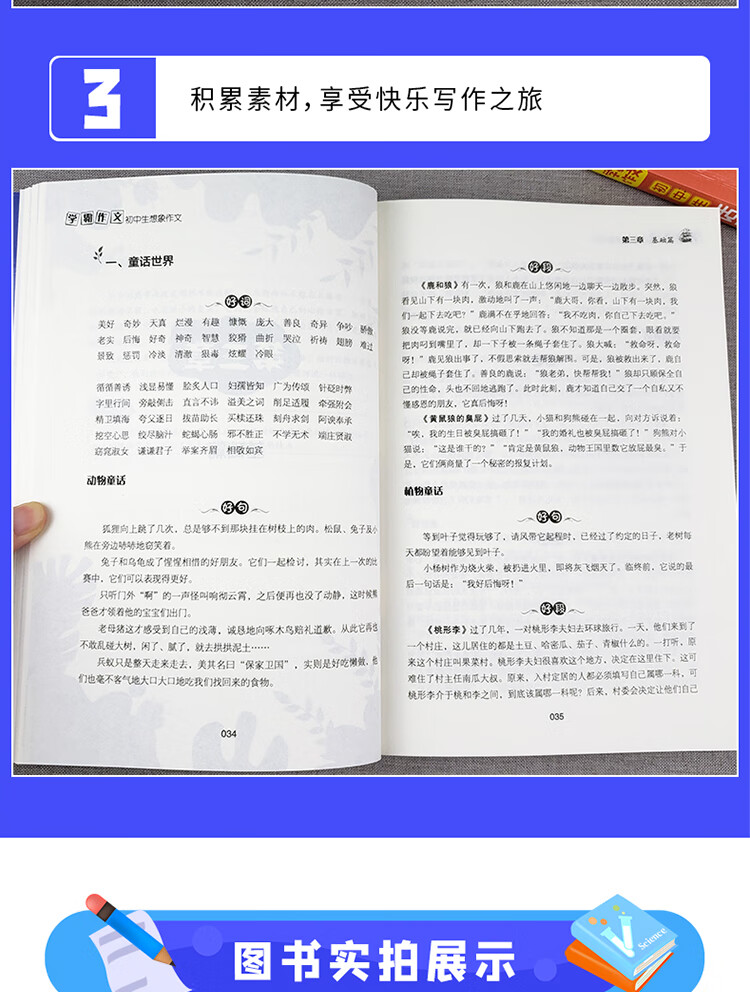 3
积累素材，享受快乐写作之旅
学霸作文 初中生想象作文
一、童话世界
好词
美好 奇妙 天真 烂漫 有趣 慷慨 庞大 善良 奇异 争吵 骄傲
老实 后悔 好奇 神奇 智慧 狡猾 曲折 哭泣 祈祷 翅膀 难过
景致 惩罚 冷淡 清澈 狠毒 炫耀 冷眼
循循善诱 浅显易懂 脍炙人口 妇孺皆知 广为传颂 针砭时弊
字里行间 旁敲侧击 直言不讳 溢美之词 削足适履 牵强附会
精卫填海 夸父逐日 拔苗助长 买椟还珠 刻舟求剑 阿谀奉承
挖空心思 绞尽脑汁 蛇蝎心肠 邪不胜正 不学无术 端庄贤淑
窈窕淑女 谦谦君子 举案齐眉 相敬如宾
动物童话
好句
狐狸向上跳了几次，总是够不到那块挂在树枝上的肉。松鼠、兔子及小
熊在旁边哧哧地窃笑着。
兔子和乌龟成了惺惺相惜的好朋友。它们一起检讨，其实在上一次的比
赛中，它们可以表现得更好。
只听门外“啊”的一声怪叫响彻云霄，之后便再也没了动静，这时候熊
爸爸才领着他的宝宝们出门。
老母猪这才感受到自己的浅薄，诚恳地向啄木鸟赔礼道歉。从此它再也
不敢乱碰大树，闲了、腻了，就去拱拱泥土……
兵蚁只是整天走来走去，美其名曰“保家卫国”，实则是好吃懒做，他
们也毫不客气地大口大口地吃我们找回来的食物。
034
第三章 基础篇
好段
《鹿和狼》有一次，狼和鹿在山上悠闲地一边聊天一边散步。突然，狼
看见山下有一块肉，激动地叫了一声：“鹿大哥，你看，山下有一块肉，我
们一起下去吃吧？”鹿满不在乎地回答：“我不吃肉，你自己下去吃吧。”
狼没等鹿说完，就已经向山下跑去了。狼不知道那是一个圈套，眼看就要
把肉叼到嘴里了，却一下子被一条绳子套住了。狼大喊：“救命呀，救命
呀！”鹿见狼出事了，不假思索就去帮狼解围。可是，狼被救出来了，鹿自
己却被绳子套住了。善良的鹿说：“狼老弟，快帮帮我！”狼却只顾保全自
己的性命，头也不回地逃跑了。此时此刻，鹿才知道自己交了一个自私又不
懂感恩的朋友，它真后悔呀！
《黄鼠狼的臭屁》过了几天，小猫和狗熊碰在一起，向对方诉说着：
“唉，我的生日被臭屁搞砸了！”“我的婚礼也被臭屁搞砸了！”狗熊对小
猫说：“这是谁干的？”“肯定是黄鼠狼，动物王国里数它放屁最臭。”于
是，它们俩商量了一个秘密的报复计划。
植物童话
好句
等到叶子觉得玩够了，请风带它起程时，已经过了约定的日子，老树每
天都盼望着能够见到叶子。
小杨树作为烧火柴，被扔进火里，即将灰飞烟灭了。临终前，它说的最
后一句话是：“我好后悔呀！”
好段
《桃形李》过了几年，一对桃形李夫妇去环球旅行。一天，他们来到了
一个村庄，这儿居住的都是土豆、哈密瓜、茄子、青椒什么的。一打听，原
来这个村庄叫果菜村。桃形李夫妇很喜欢这个地方，决定在这里住下。这可
难住了村主任南瓜大叔。原来，入村定居的人都必须填写自己属哪一科，可
桃形李介于桃和李之间，到底该属哪一科呢？后来，村委会决定让他们自己
035
图书实拍展示
V
Science